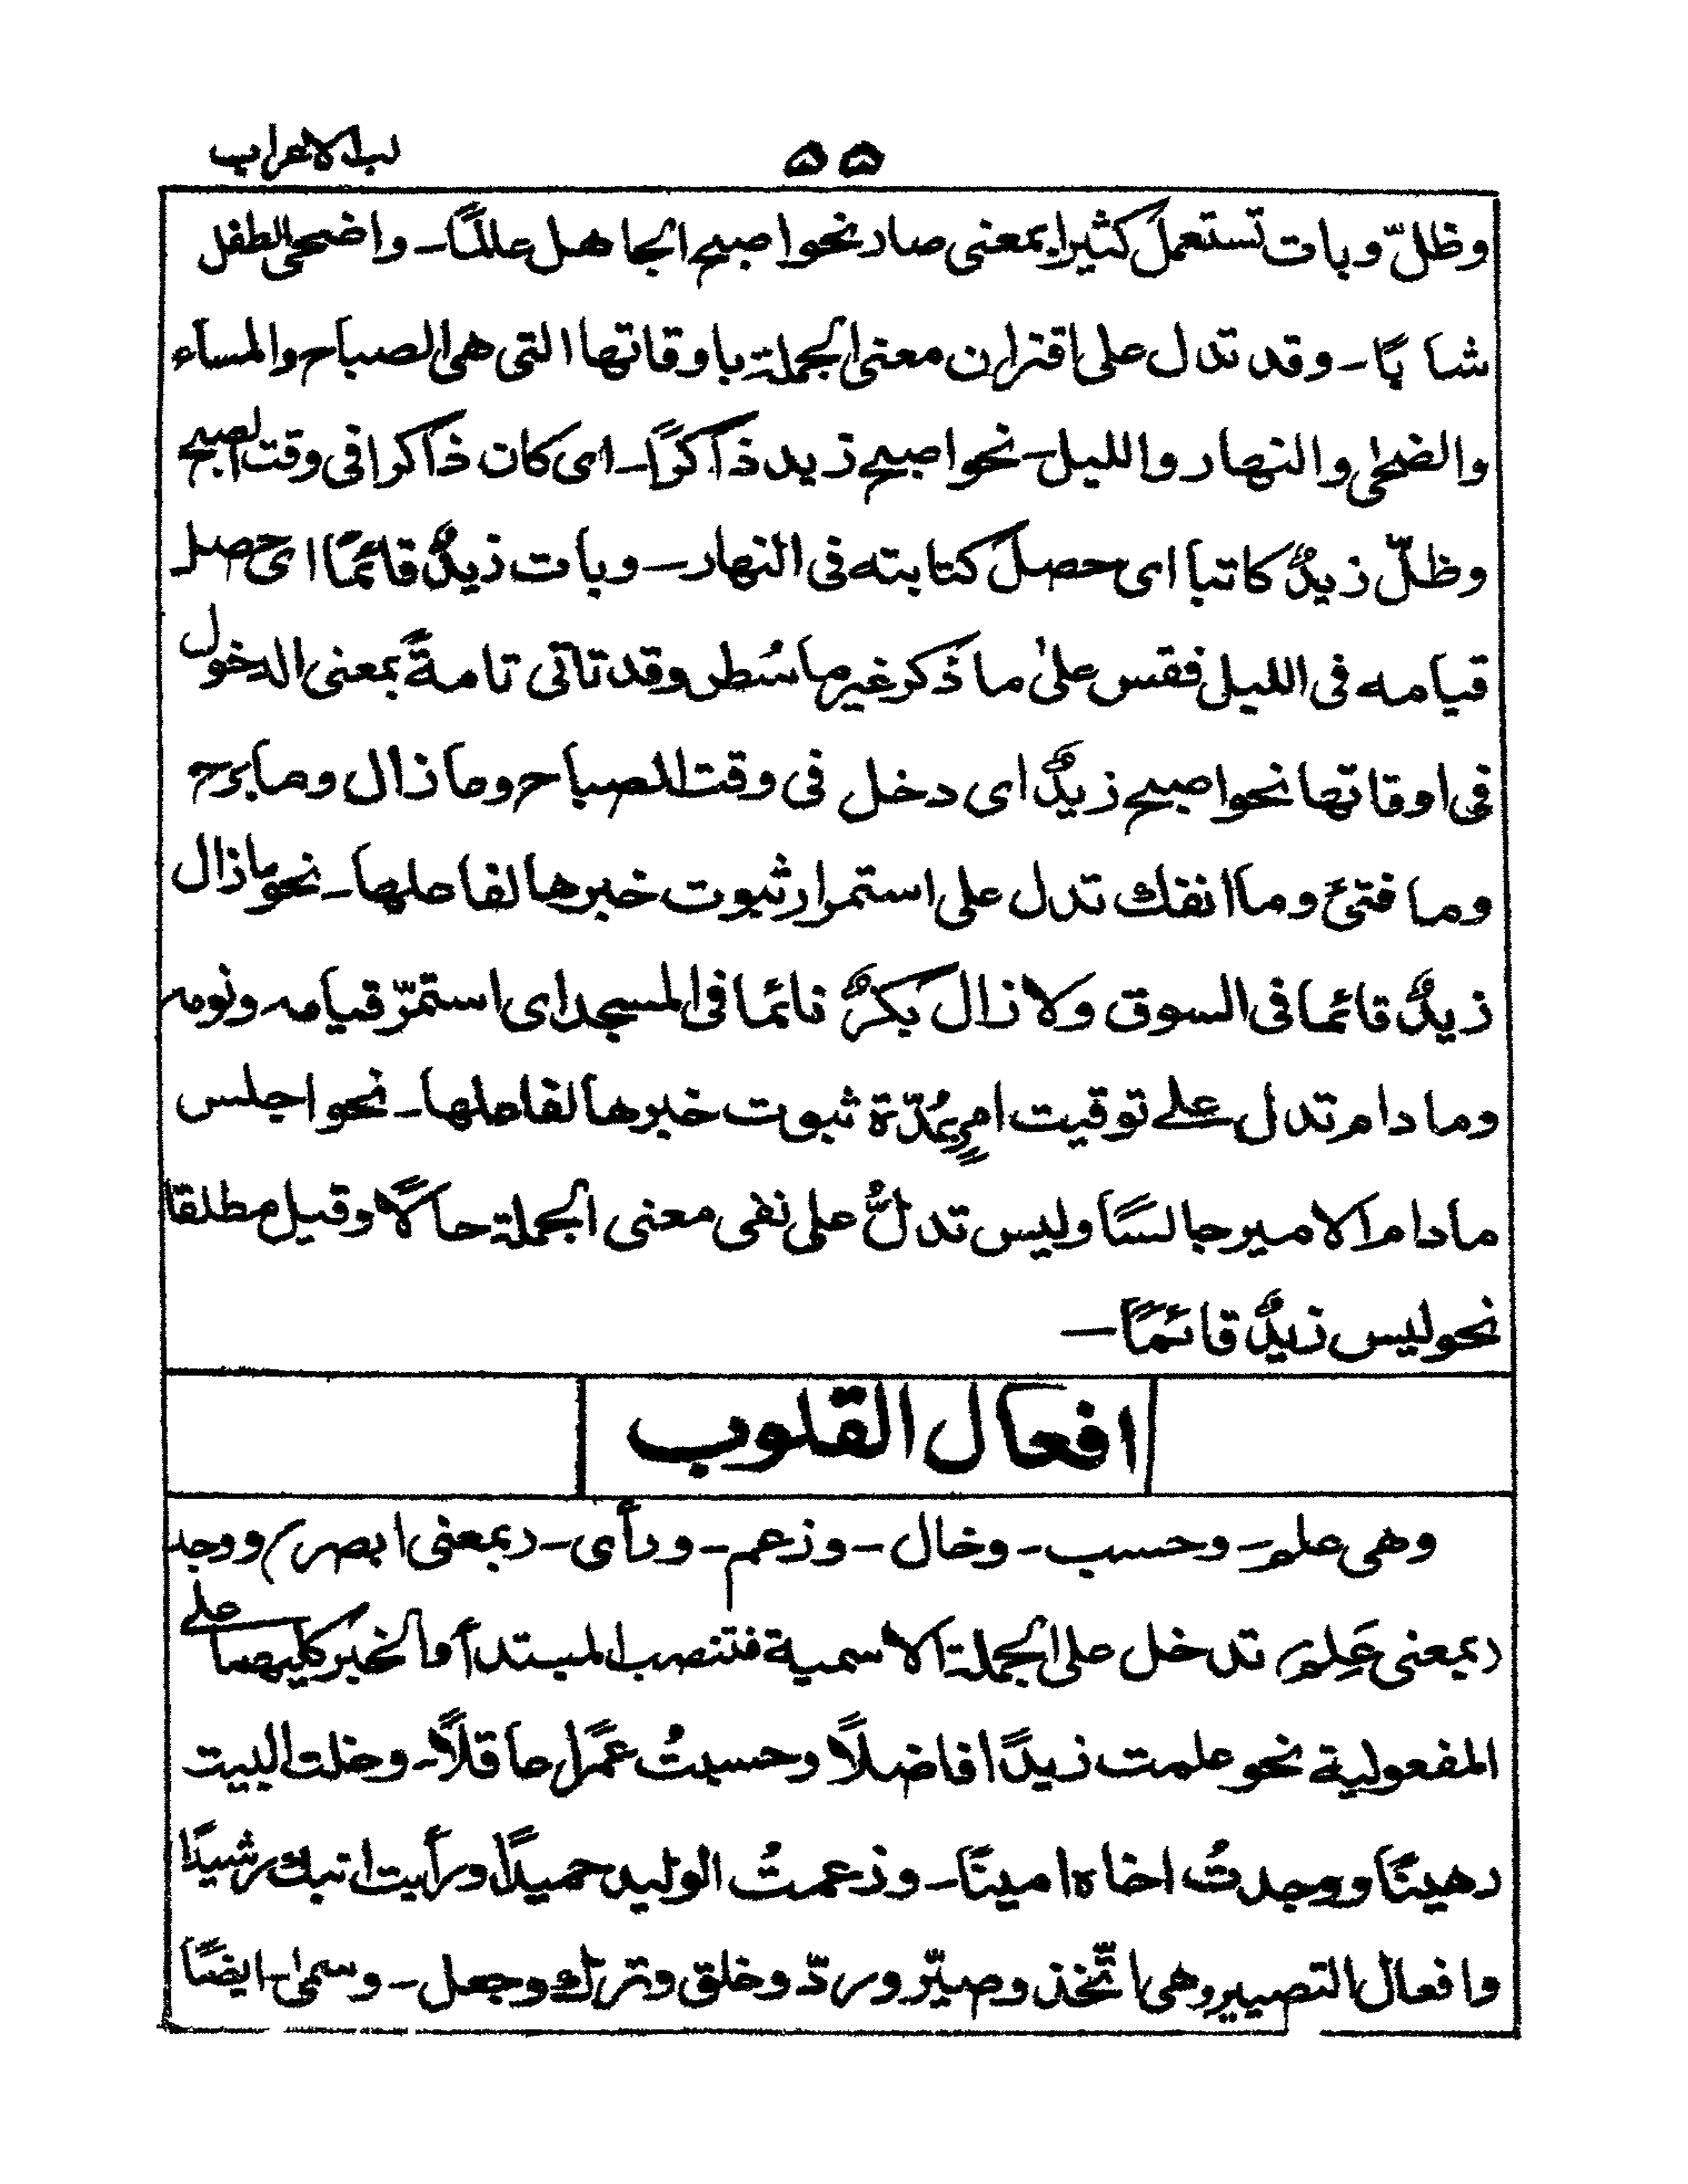 لب الاعراب
٥٥
وظلّ وبات تستعمل كثيرا بمعنى صار نحو اصبح الجاهل عالمًا ـ واضحى الطفل
شابًا ـ وقد تدل على اقتران معنى الجملة باوقاتها التى هى الصباح والمساء
والضحىٰ والنهار والليل ـ نحو اصبح زيد ذاكرًا ـ اى كان ذاكرا فى وقت الصبح
وظلّ زيدٌ كاتبا اى حصل كتابته فى النهار ـ وبات زيدٌ قائمًا اى حصل
قيامه فى الليل فقس علىٰ ما ذكر غير ما سُطر وقد تاتى تامةً بمعنى الدخول
فى اوقاتها نحو اصبح زيدٌ اى دخل فى وقت الصباح وما زال وما برح
وما فتئ وما انفك تدل على استمرار ثبوت خبرها لفاعلها ـ نحو ما زال
زيدٌ قائما فى السوق ولا زال بكرٌ نائما فى المسجد اى استمرّ قيامه ونومه
وما دام تدل علے توقيت امرٍ بمُدّة ثبوت خبرها لفاعلها ـ نحو اجلس
مادام الامير جالسًا وليس تدلُّ على نفى معنى الجملة حالًا وقيل مطلقا
نحو ليس زيدٌ قائمًا ـ
افعال القلوب
وهى علم ـ وحسب ـ وخال ـ وزعم ـ ورأى ـ (بمعنى ابصر) ووجد
(بمعنى عَلِمَ) تدخل على الجملة الاسمية فتنصب المبتدأ والخبر كليهما علے
المفعولية نحو علمت زيدًا فاضلًا وحسبتُ عمرًا عاقلًا ـ وخلت البيت
رهينًا ووجدتُ اخاه امينًا ـ وزعمتُ الوليد حميدًا ورأيت ابنك رشيدًا
وافعال التصيير وهى اتّخذ وصيّر وردّ وخلق وترك وجعل ـ وسمىٰ ايضًا